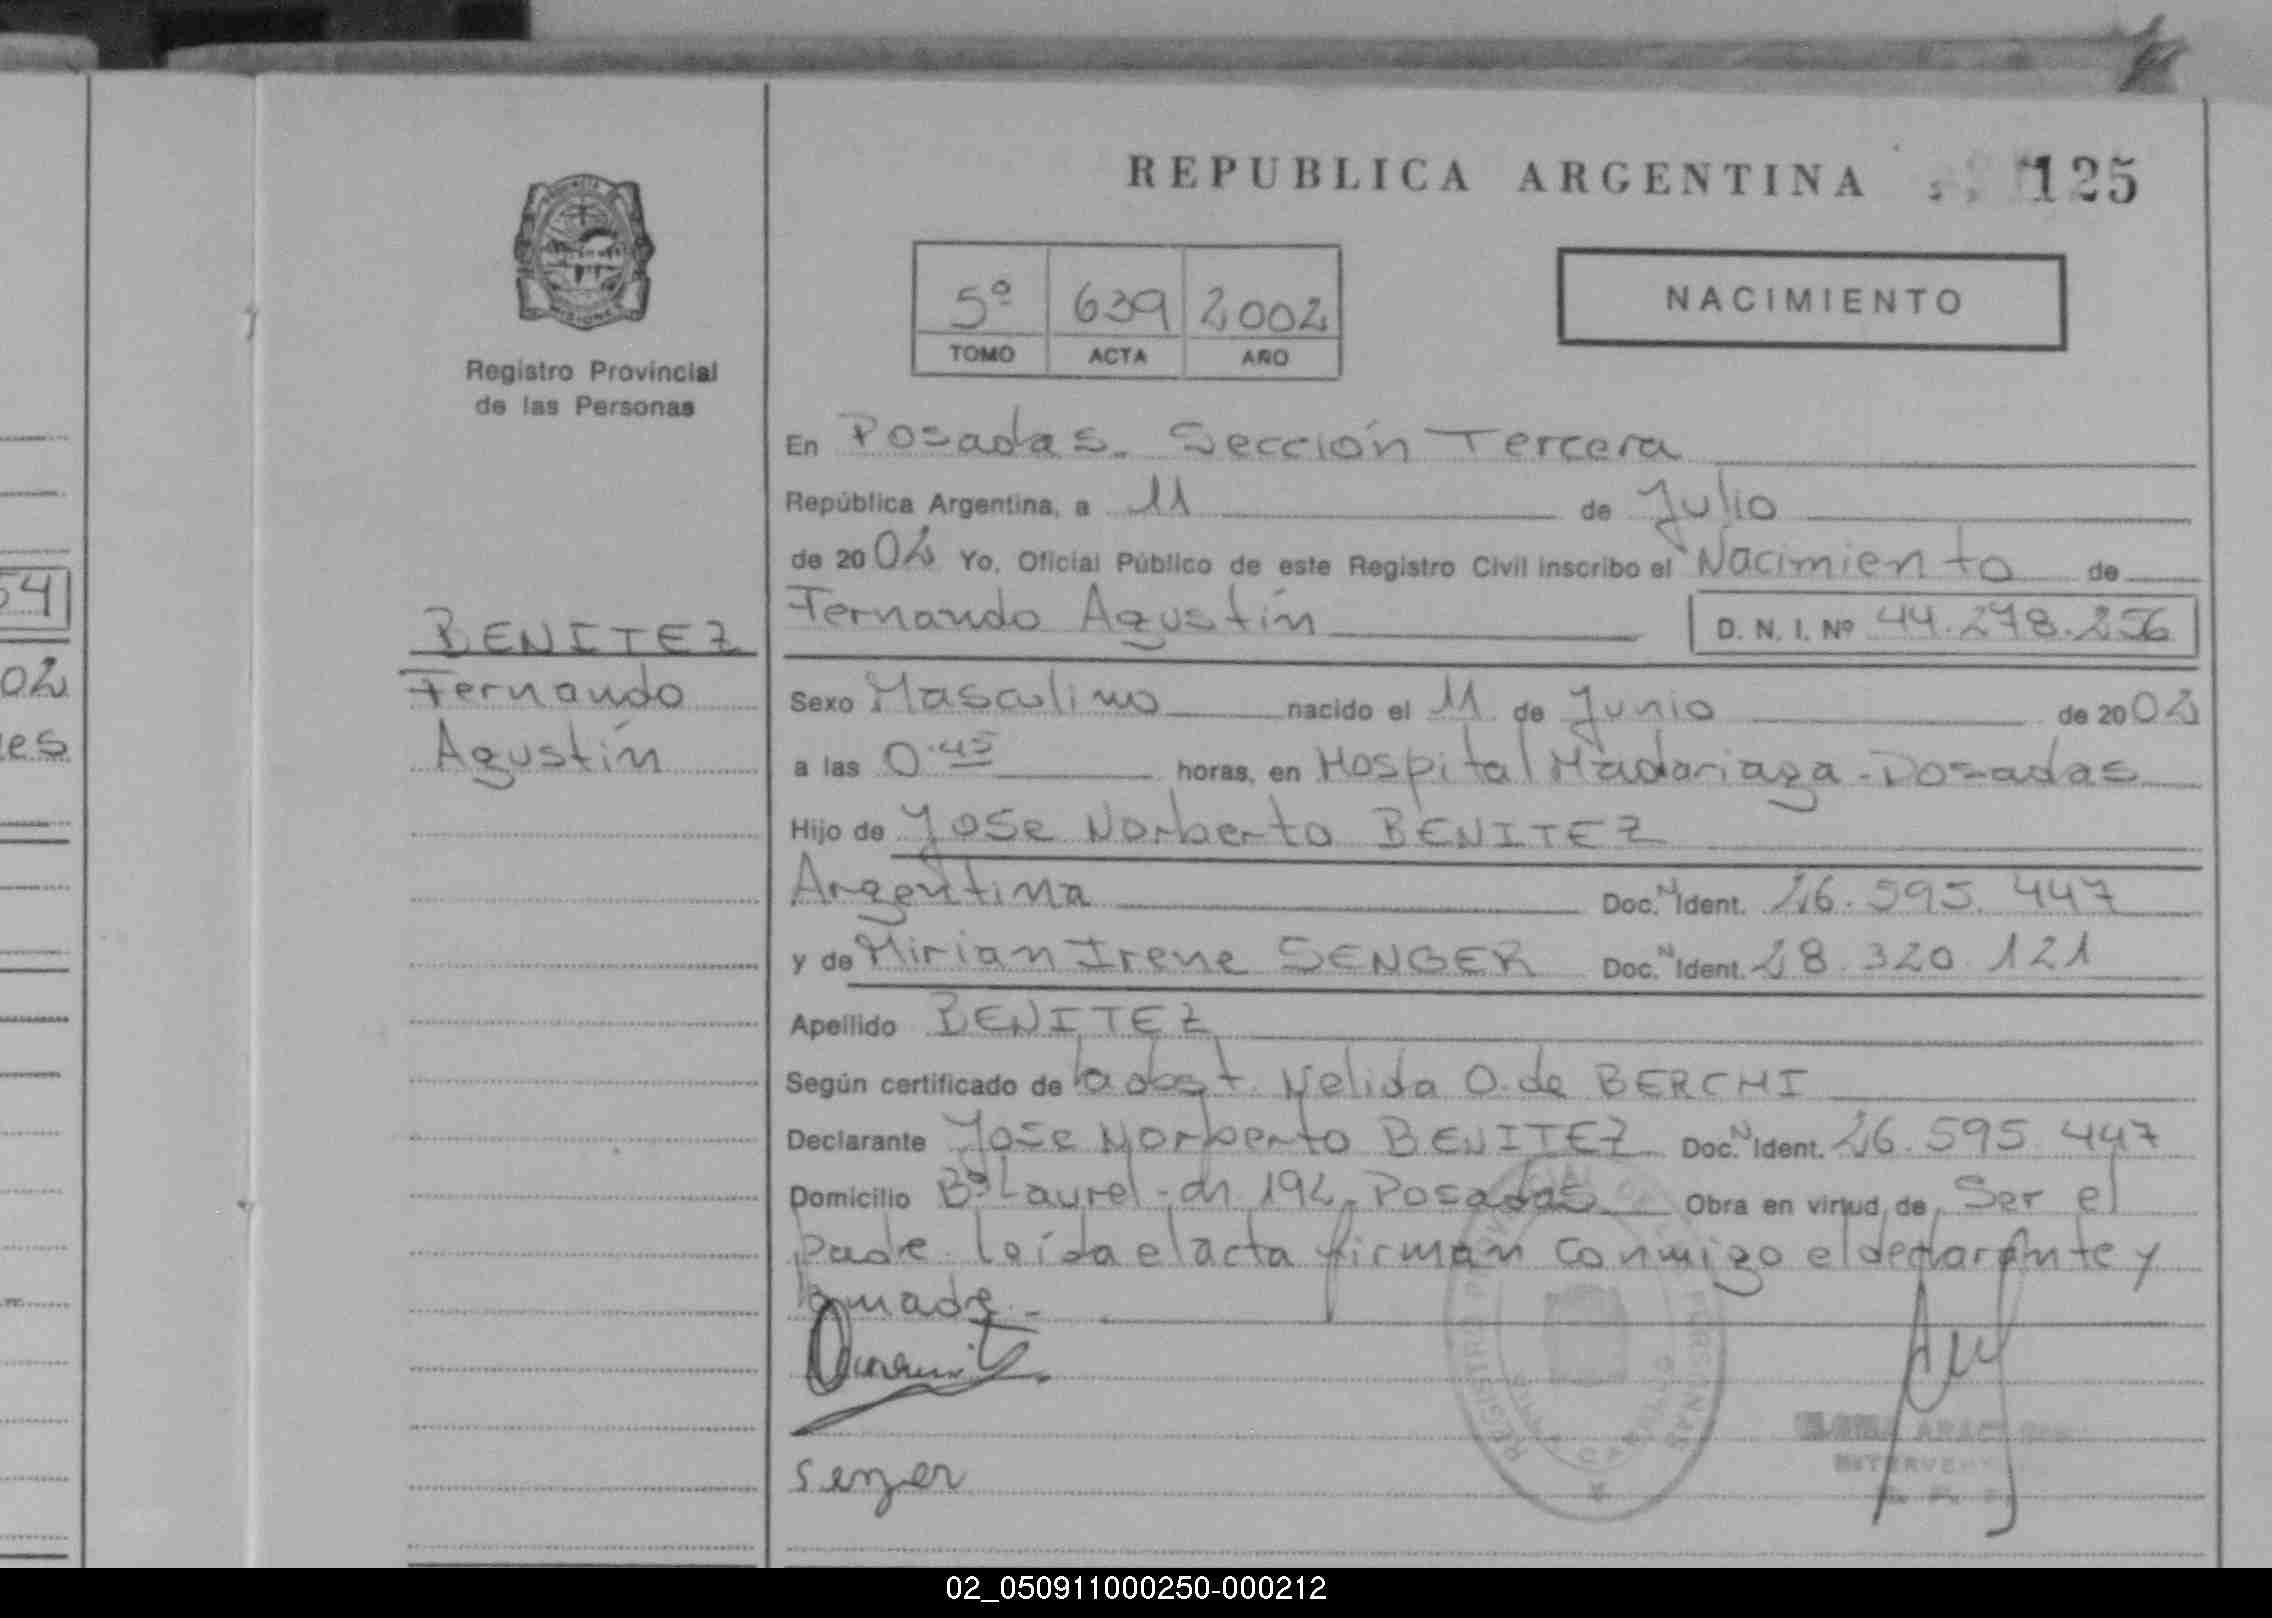 REPUBLICA ARGENTINA 125
5º 639 2002
TOMO ACTA AÑO
NACIMIENTO
Registro Provincial
de las Personas
En Posadas. Sección Tercera
República Argentina, a 11 de Julio
de 2002 Yo, Oficial Público de este Registro Civil inscribo el Nacimiento de
54
Fernando Agustín D. N. I. Nº 44.278.256
BENITEZ
02
Fernando
Sexo Masculino nacido el 11 de Junio de 2002
es
Agustín
a las 0.45 horas, en Hospital Madariaga - Posadas
Hijo de Jose Norberto BENITEZ
Argentina Doc. N Ident. 26.595.447
y de Mirian Irene SENGER Doc. N Ident. 28.320.121
Apellido BENITEZ
Según certificado de la obst. Nelida O. de BERCHI
Declarante Jose Norberto BENITEZ Doc. N Ident. 26.595.447
Domicilio Bº Laurel - ch 192 - Posadas Obra en virtud de Ser el
Padre. leída el acta firman conmigo el declarante y
la madre. -
Senger
REGISTRO PROVINCIAL DE LAS PERSONAS
02_050911000250-000212